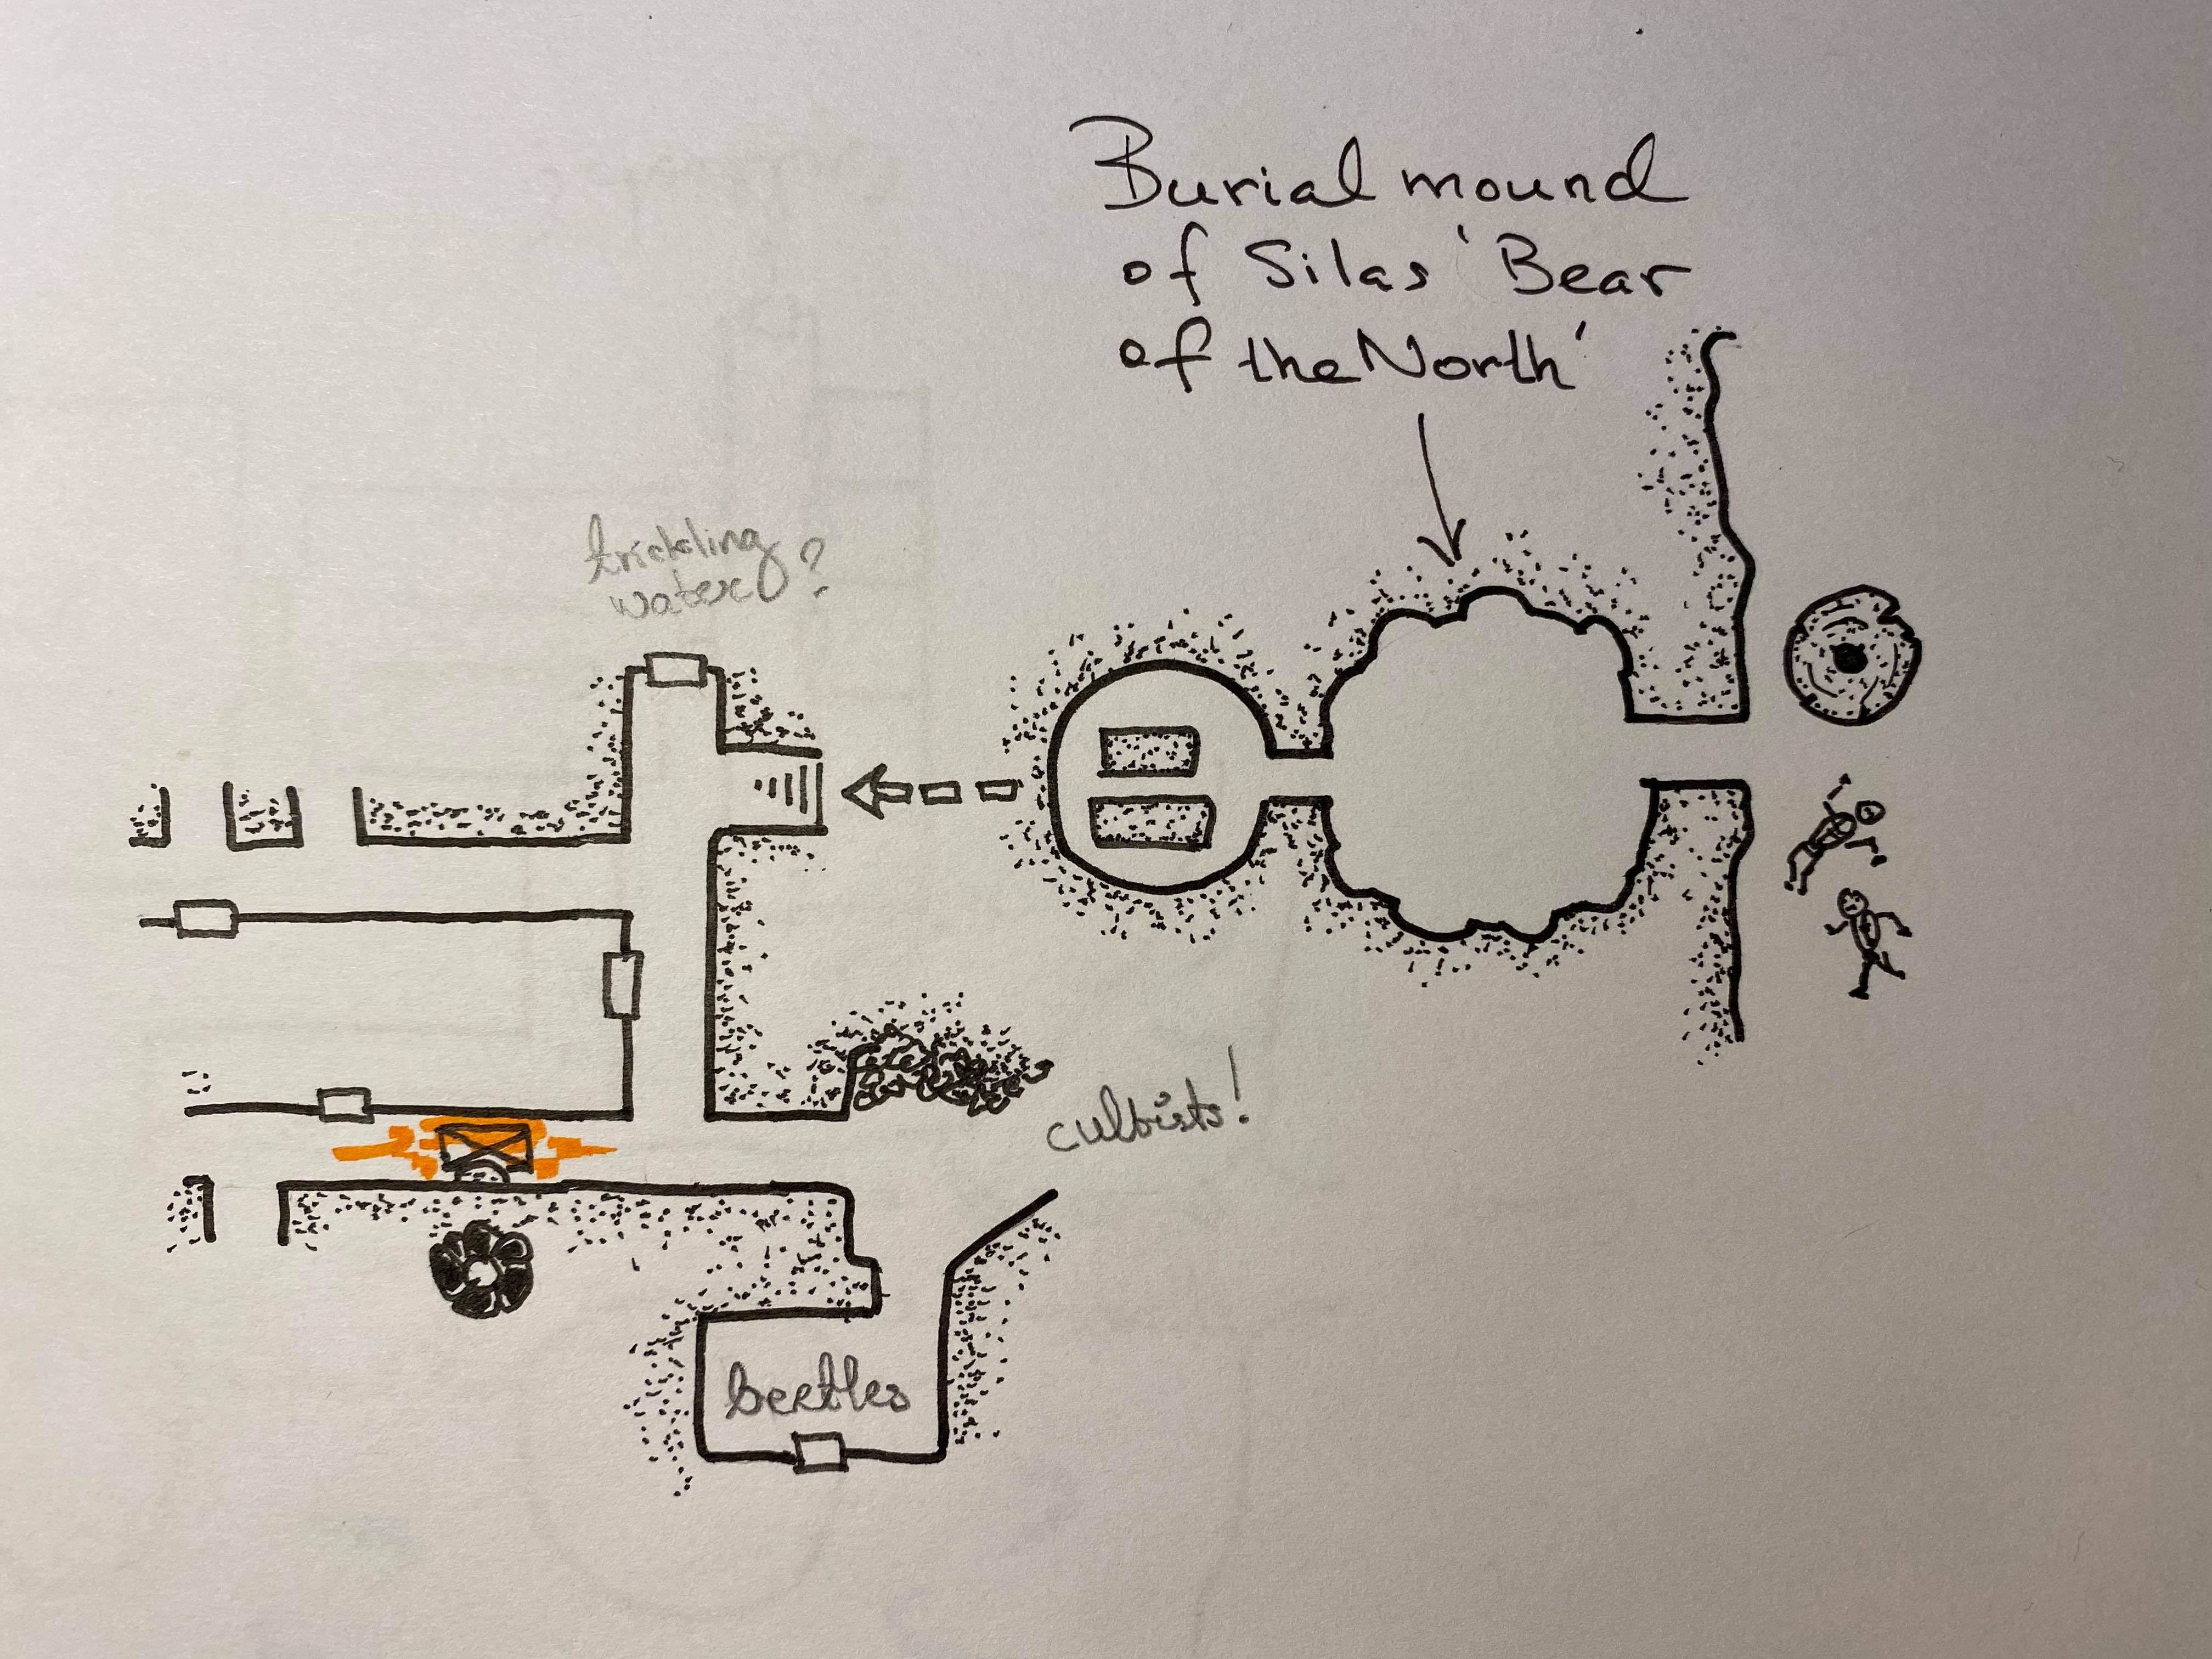 Burial mound
of Silas 'Bear
of the North'
trickling
water?
cultists!
beetles